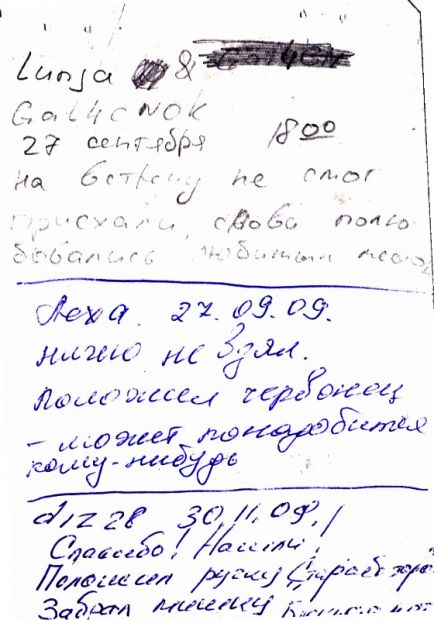 Lunja &
Gal4cNOK
27 сентября 18 00
на встречу не смог
приехали, снова полю
бовались любимым
Леха. 27.09.09.
ничего не взял.
положил червонец
- может понадобится
кому-нибудь
diz28 30.11.09.
Спасибо! Нашли!
Положил ручку
Забрал